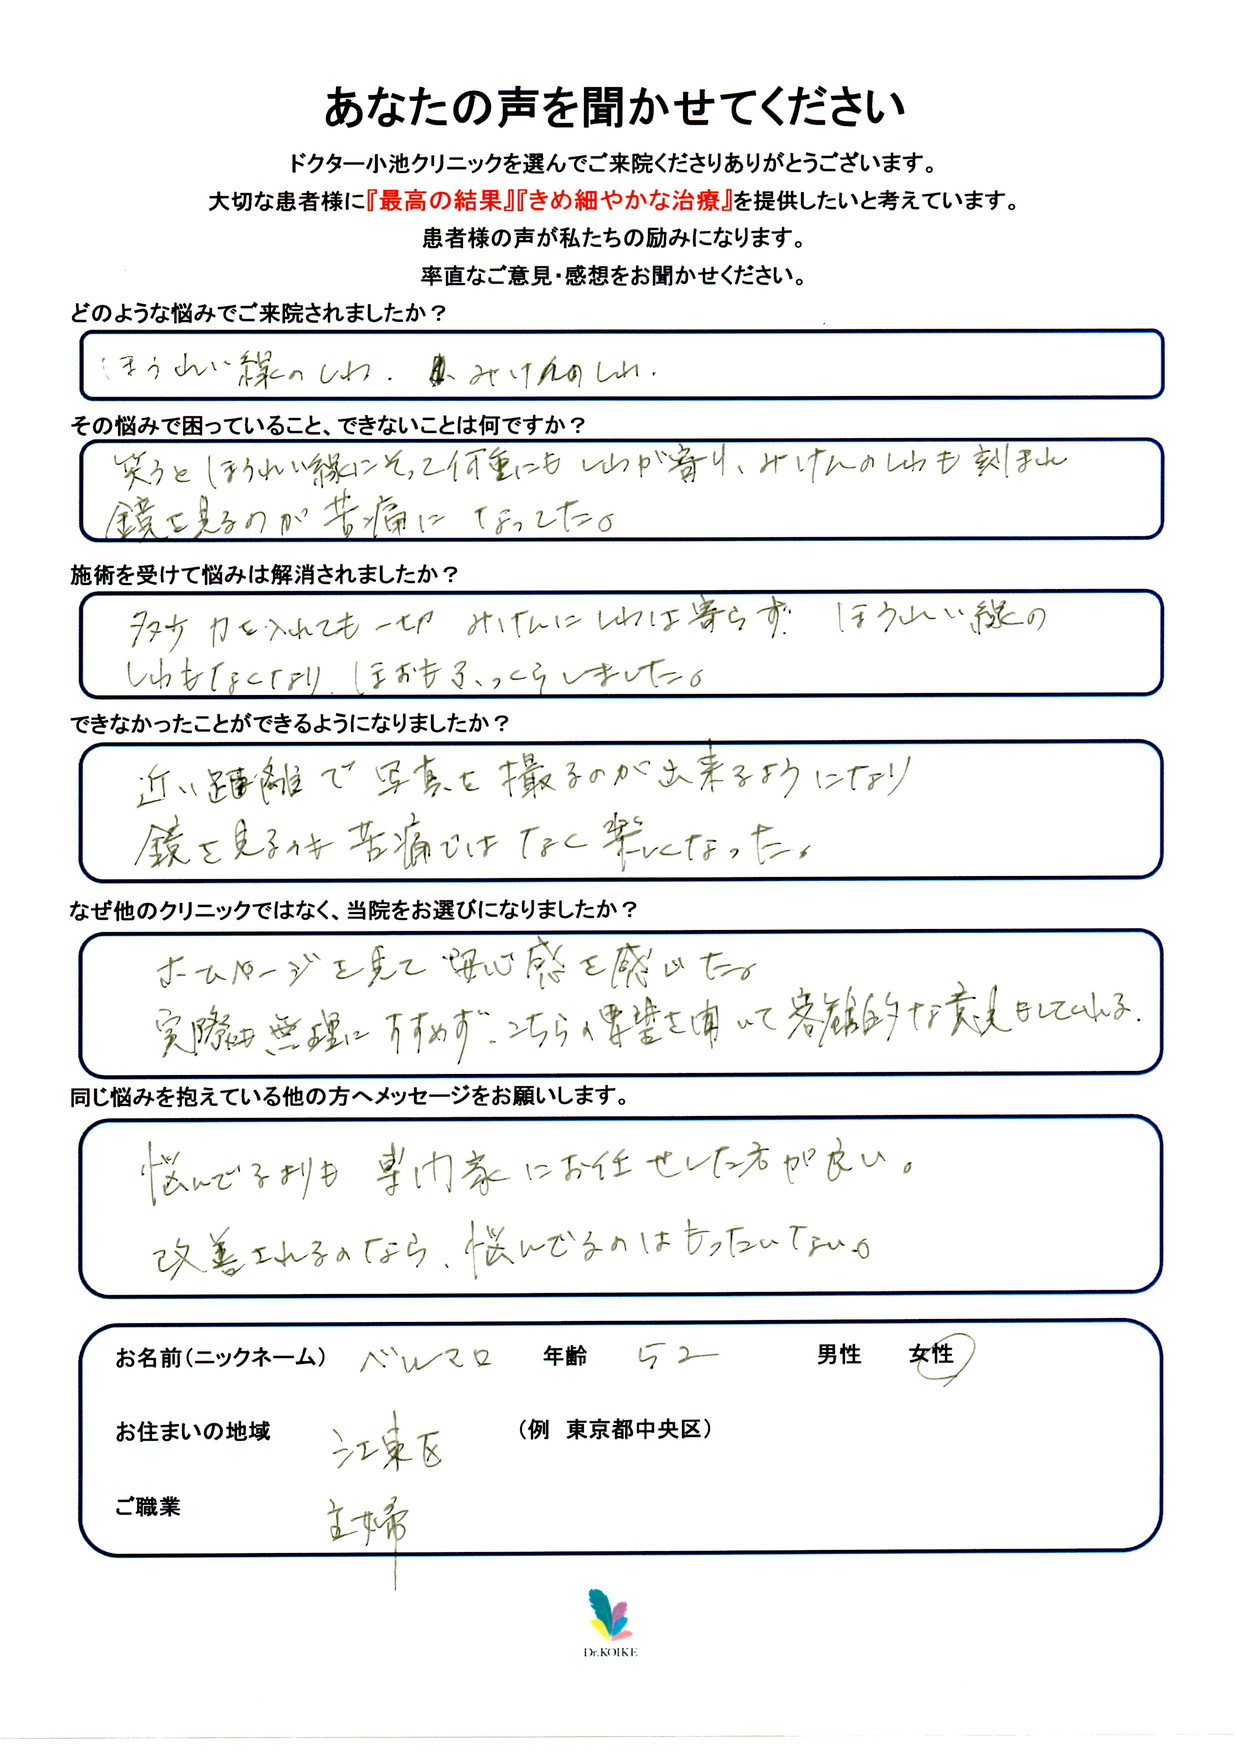 あなたの声を聞かせてください
ドクター小池クリニックを選んでご来院くださりありがとうございます。
大切な患者様に『最高の結果』『きめ細やかな治療』を提供したいと考えています。
患者様の声が私たちの励みになります。
率直なご意見・感想をお聞かせください。
どのような悩みでご来院されましたか？
ほうれい線のしわ. みけんのしわ.
その悩みで困っていること、できないことは何ですか？
笑うとほうれい線にそって何重にもしわが寄り、みけんのしわも刻まれ
鏡を見るのが苦痛になってた。
施術を受けて悩みは解消されましたか？
力を入れても一切 みけんにしわは寄らず. ほうれい線の
しわもなくなり、ほおもふっくらしました。
できなかったことができるようになりましたか？
近い距離で写真を撮るのが出来るようになり
鏡を見るのも苦痛ではなく楽しくなった。
なぜ他のクリニックではなく、当院をお選びになりましたか？
ホームページを見て安心感を感じた。
実際も無理にすすめず、こちらの要望を聞いて客観的な意見をしてくれる.
同じ悩みを抱えている他の方へメッセージをお願いします。
悩んでるよりも 専門家にお任せした方が良い。
改善されるのなら、悩んでるのはもったいない。
お名前（ニックネーム） ベルマロ 年齢 52 男性 女性
お住まいの地域 江東区 （例 東京都中央区）
ご職業 主婦
Dr.KOIKE